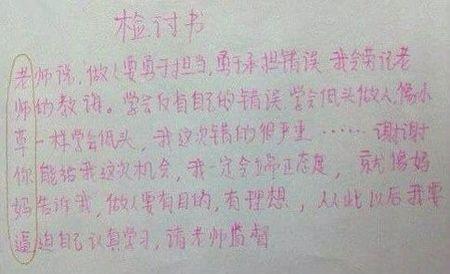 检讨书
老师说，做人要勇于担当，勇于承担错误 我会荣记老
师的教诲。学会反省自己的错误 学会低头做人，像小
草一样学会低头，我这次错的很严重……谢谢
你能给我这次机会，我一定会端正态度，就像妈
妈告诉我，做人要有目的，有理想，从此以后我要
逼迫自己认真学习，请老师监督